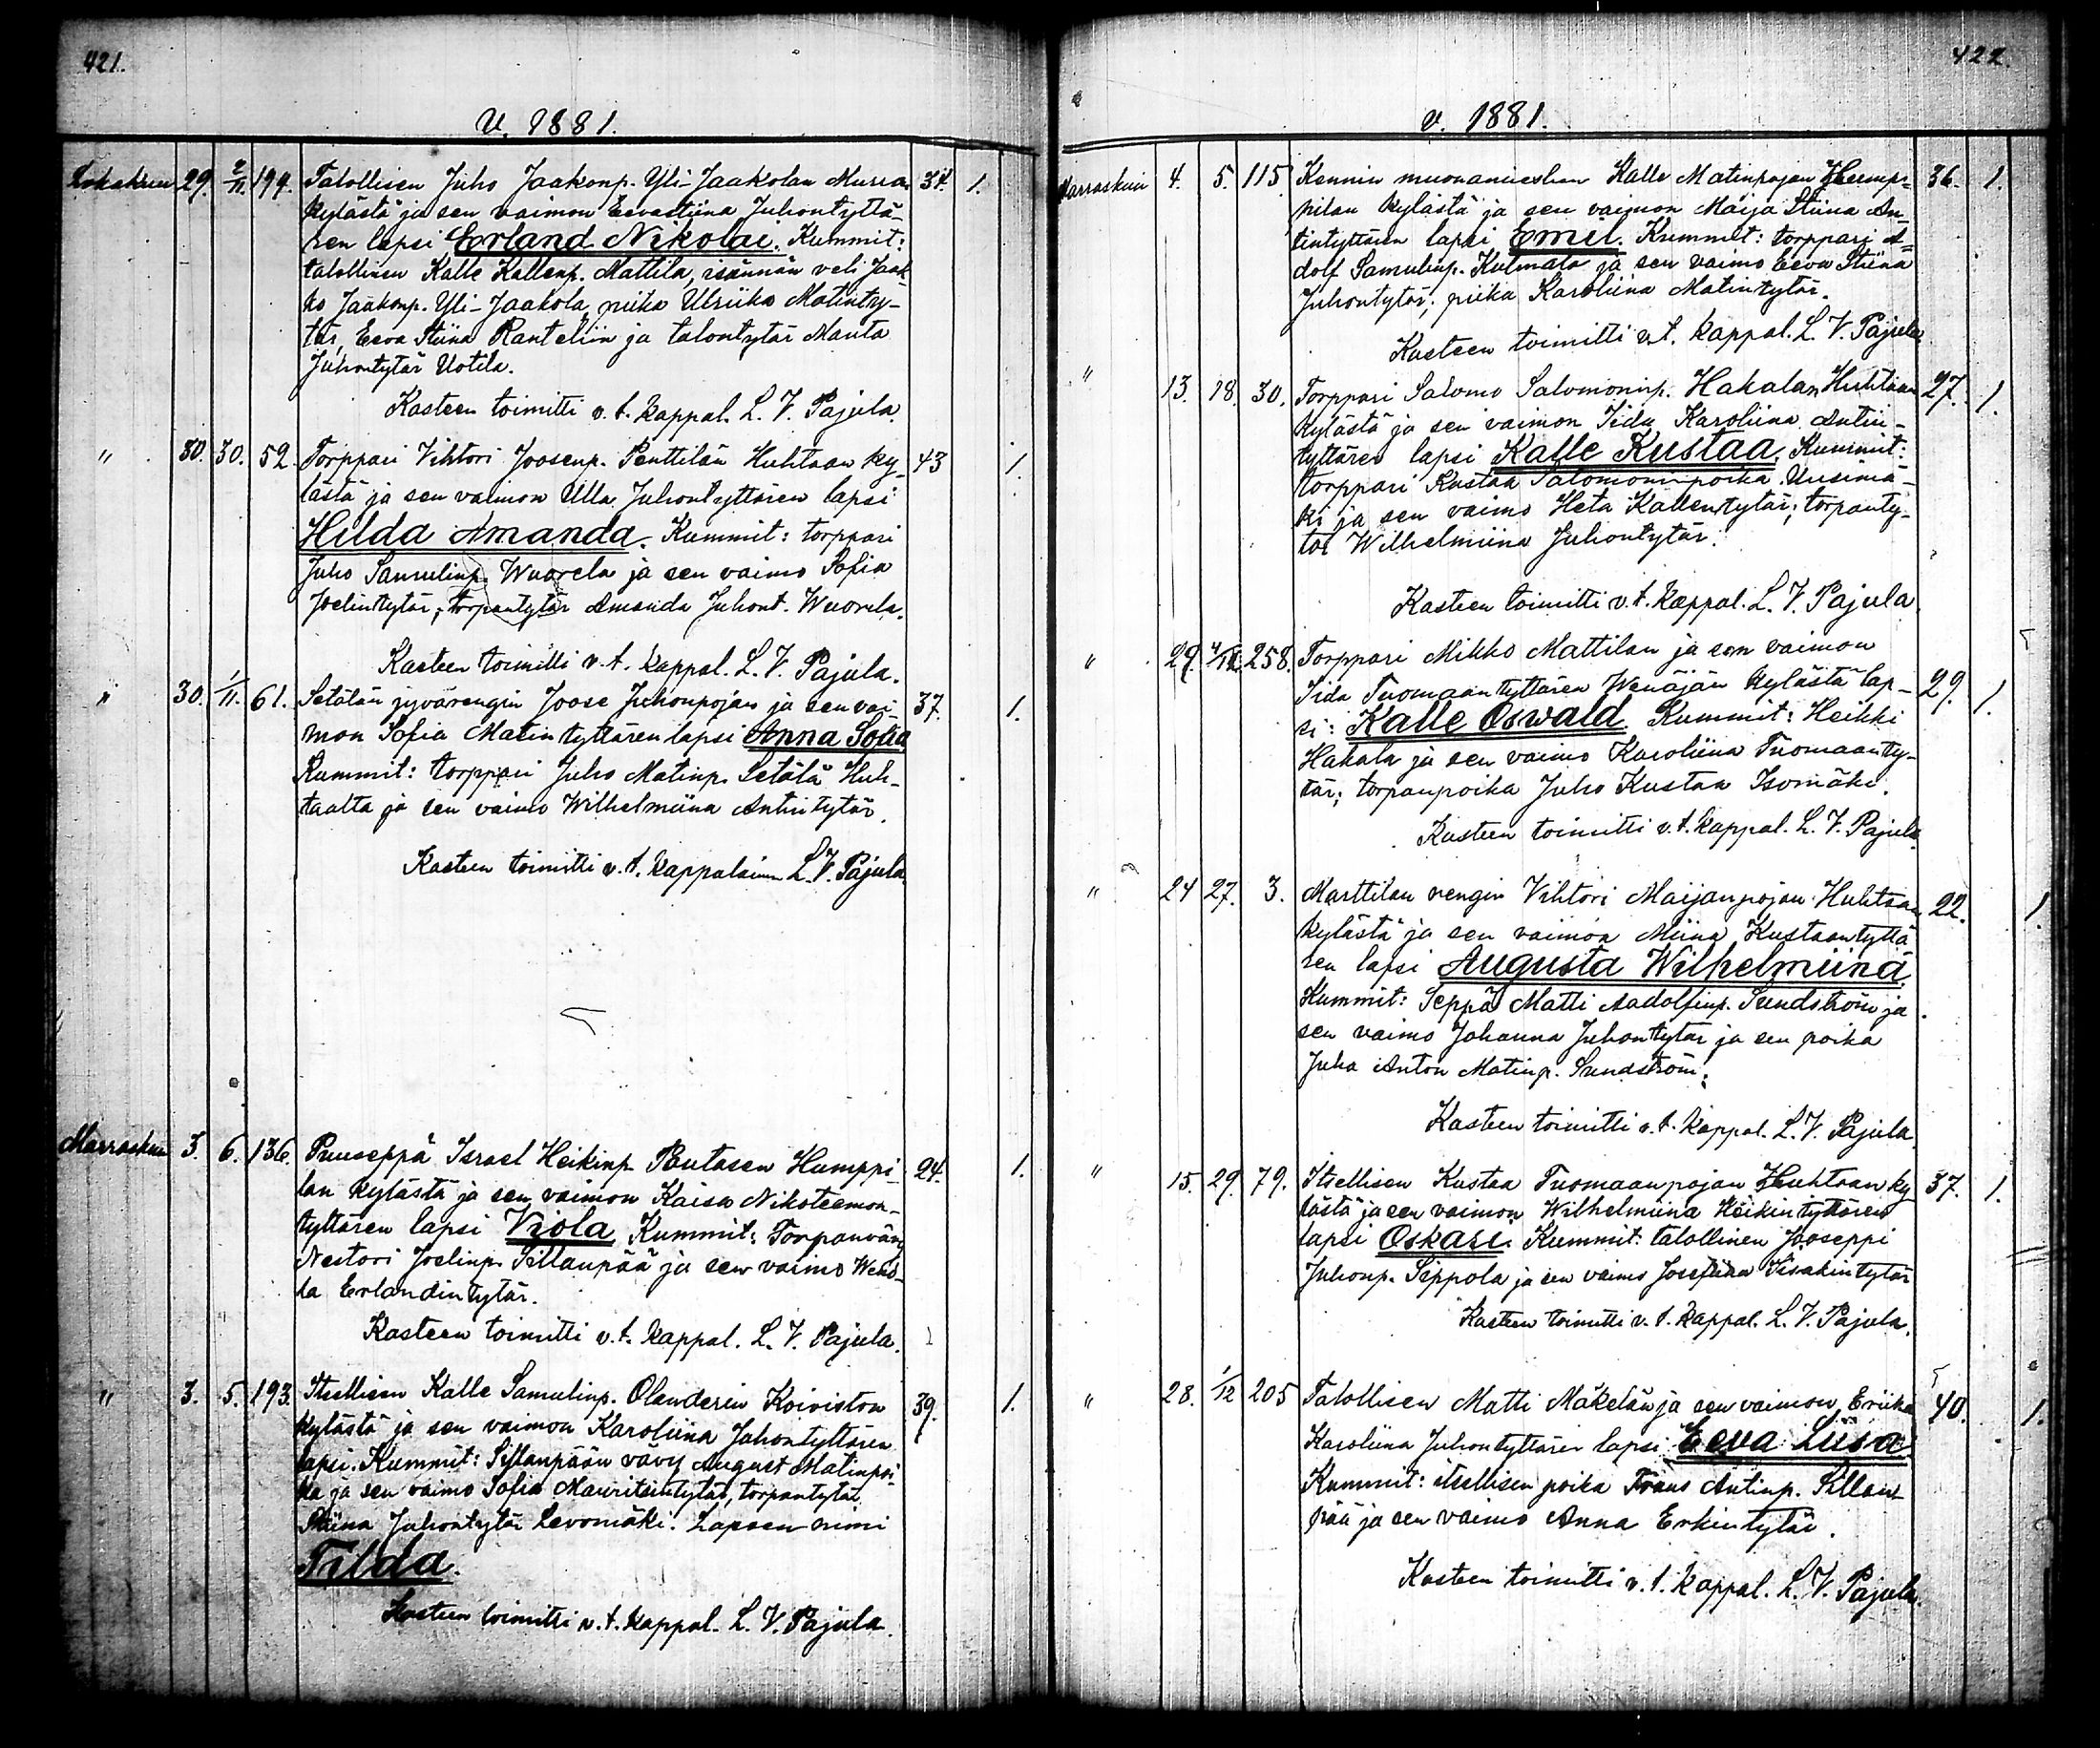 421.
V. 1881.
Lokakuun 29. 2/11. 194. Talollisen Juho Jaakonp. Yli-Jaakolan Murron 34. 1.
kylästä ja sen vaimon Eevastiina Juhontyttä-
ren lapsi Erland Nikolai. Kummit:
talollinen Kalle Kallenp. Mattila, isännän veli Jaak-
ko Jaakonp. Yli-Jaakola, piika Ulriika Matinty-
tär, Eeva Stiina Rantelin ja talontytär Manta
Juhontytär Uotila.
Kasteen toimitti v. t. kappal. L. V. Pajula.
" 30. 30. 52. Torppari Vihtori Joosenp. Penttilän Huhtaan ky- 43 1.
lästä ja sen vaimon Ulla Juhontyttären lapsi
Hilda Amanda. Kummit: torppari
Juho Samulinp. Wuorela ja sen vaimo Sofia
Joelintytär; torpantytär Amanda Juhont. Wuorela.
Kasteen toimitti v. t. kappal. L. V. Pajula.
" 30. 1/11. 61. Setälän jyvärengin Joose Juhonpojan ja sen vai- 37. 1.
mon Sofia Matintyttären lapsi Anna Sofia
Kummit: torppari Juho Matinp. Setälä Huh-
taalta ja sen vaimo Wilhelmiina Antintytär.
Kasteen toimitti v. t. kappalainen L. V. Pajula.
Marraskuu 3. 6. 136. Puuseppä Israel Heikinp. Routasen Humppi- 24. 1.
lan kylästä ja sen vaimon Kaisa Nikoteemon-
tyttären lapsi Viola. Kummit: Torpanvävy
Nestori Joelinp. Sillanpää ja sen vaimo Wend-
la Erlandintytär.
Kasteen toimitti v. t. kappal. L. V. Pajula.
" 3. 5. 193. Itsellisen Kalle Samulinp. Olanderin Koiviston 39. 1.
kylästä ja sen vaimon Karoliina Juhontyttären
lapsi. Kummit: Sillanpään vävy August Matinpoi-
ka ja sen vaimo Sofia Mauritsintytär, torpantytär
Stiina Juhontytär Levomäki. Lapsen nimi
Tilda.
Kasteen toimitti v. t. kappal. L. V. Pajula.
422.
v. 1881.
Marraskuu 4. 5. 115 Kennin muonamiehen Kalle Matinpojan Humpi- 36. 1.
pilan kylästä ja sen vaimon Maija Stiina An-
tintyttären lapsi Emil. Kummit: torppari A-
dolf Samulinp. Kulmala ja sen vaimo Eeva Stiina
Juhontytär; piika Karoliina Matintytär.
Kasteen toimitti v. t. kappal. L. V. Pajula
" 13. 18. 30. Torppari Salomo Salomoninp. Hakalan Huhtaan 27. 1.
kylästä ja sen vaimon Iida Karoliina Antin-
tyttären lapsi Kalle Kustaa. Kummit:
torppari Kustaa Salomoninpoika Uusimä-
ki ja sen vaimo Heta Kallentytär; torpanty-
tär Wilhelmiina Juhontytär.
Kasteen toimitti v. t. kappal. L. V. Pajula.
" 29. 258. Torppari Mikko Mattilan ja sen vaimon
Iida Tuomaantyttären Wenäjän kylästä lap- 29. 1.
si: Kalle Oswald. Kummit: Heikki
Hakala ja sen vaimo Karoliina Tuomaanty-
tär; torpanpoika Juho Kustaa Isomäki.
Kasteen toimitti v. t. kappal. L. V. Pajula.
" 24 27. 3. Marttilan rengin Vihtori Maijanpojan Huhtaan 22. 1.
kylästä ja sen vaimon Miina Kustaantyttä-
ren lapsi Augusta Wilhelmiina.
Kummit: Seppä Matti Aadolfinp. Sundström ja
sen vaimo Johanna Juhontytär ja sen poika
Juha Anton Matinp. Sundström.
Kasteen toimitti v. t. kappal. L. V. Pajula.
" 15. 29. 79. Itsellisen Kustaa Tuomaanpojan Huhtaan ky- 37. 1.
lästä ja sen vaimon Wilhelmiina Heikintyttären
lapsi Oskari. Kummit: talollinen Jooseppi
Juhonp. Seppola ja sen vaimo Josefiina Iisakintytär
Kasteen toimitti v. t. kappal. L. V. Pajula.
" 28. 1/12 205 Talollisen Matti Mäkelän ja sen vaimon Eriika 40. 1.
Karoliina Juhontyttären lapsi Eeva Liisa
Kummit: itsellisen poika Frans Antinp. Sillan-
pää ja sen vaimo Anna Erkintytär.
Kasteen toimitti v. t. kappal. L. V. Pajula.